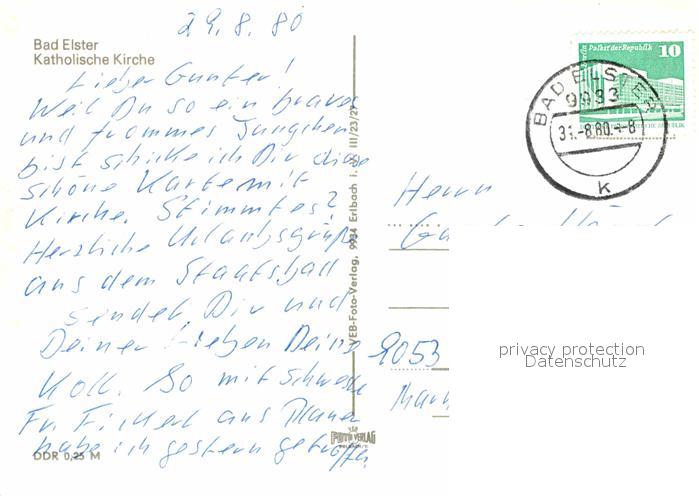 29.8.80
Bad Elster
Katholische Kirche
Lieber Gunter!
Weil Du so ein braves
und frommes Jungchen
bist schicke ich Dir diese
schöne Karte mit
Kirche. Stimmtes?
Herzliche Urlaubsgrüße
aus dem Staatsbad
sendet Dir und
Deiner lieben Deine
Koll.
Fr. aus
habe ich gestern getroffen.
DDR 0,25 M
VEB-Foto-Verlag, 9934 Erlbach I. V. III/23/27
FOTO VERLAG
ERLBACH
Berlin Palast der Republik 10
DEUTSCHE DEMOKRATISCHE REPUBLIK
BAD ELSTER
9933
31.-8.80.-8
k
Herrn
9053
privacy protection
Datenschutz